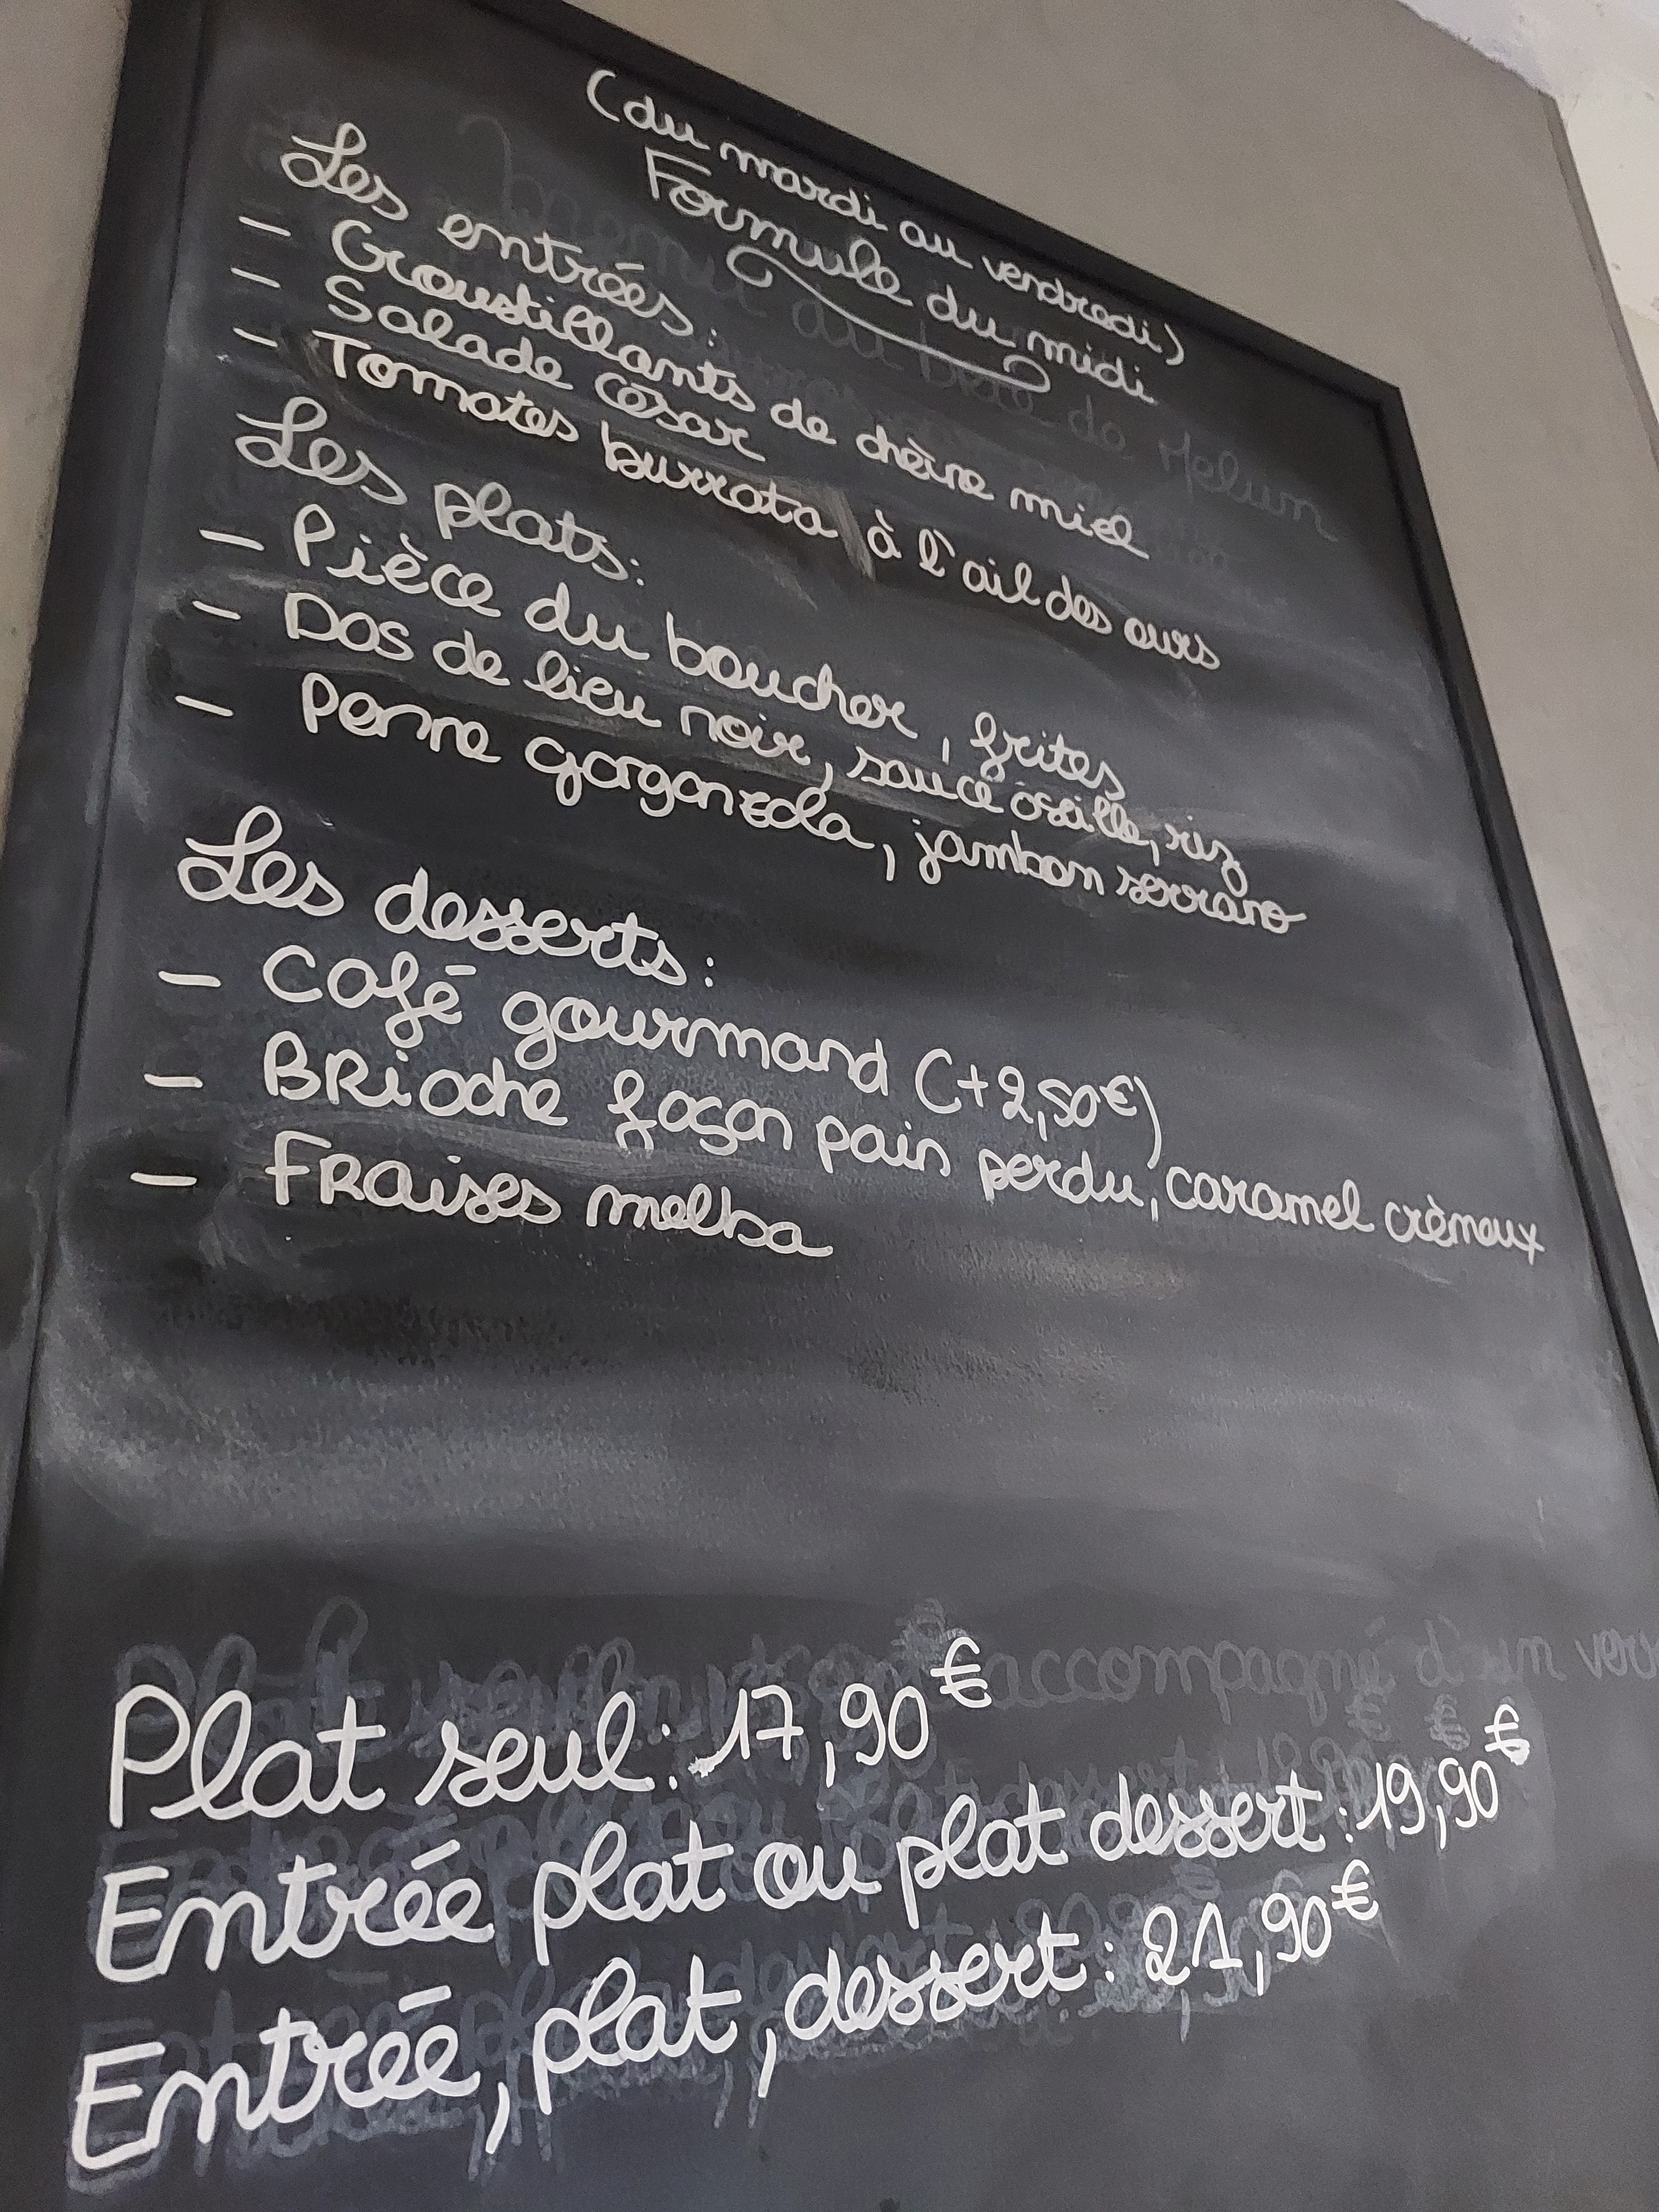 (du mardi au vendredi)
Formule du midi
Les entrées:
- Croustillants de chèvre miel
- Salade César
- Tomates burrata à l'ail des ours
Les plats:
- Pièce du boucher, frites
- Dos de lieu noir, sauce oseille, riz
- Penne gorgonzola, jambon serrano
Les desserts:
- Café gourmand (+2,50€)
- BRioche façon pain perdu, caramel crèmeux
- FRaises melba
Plat seul: 17,90€
Entrée plat ou plat dessert: 19,90€
Entrée, plat, dessert: 21,90€